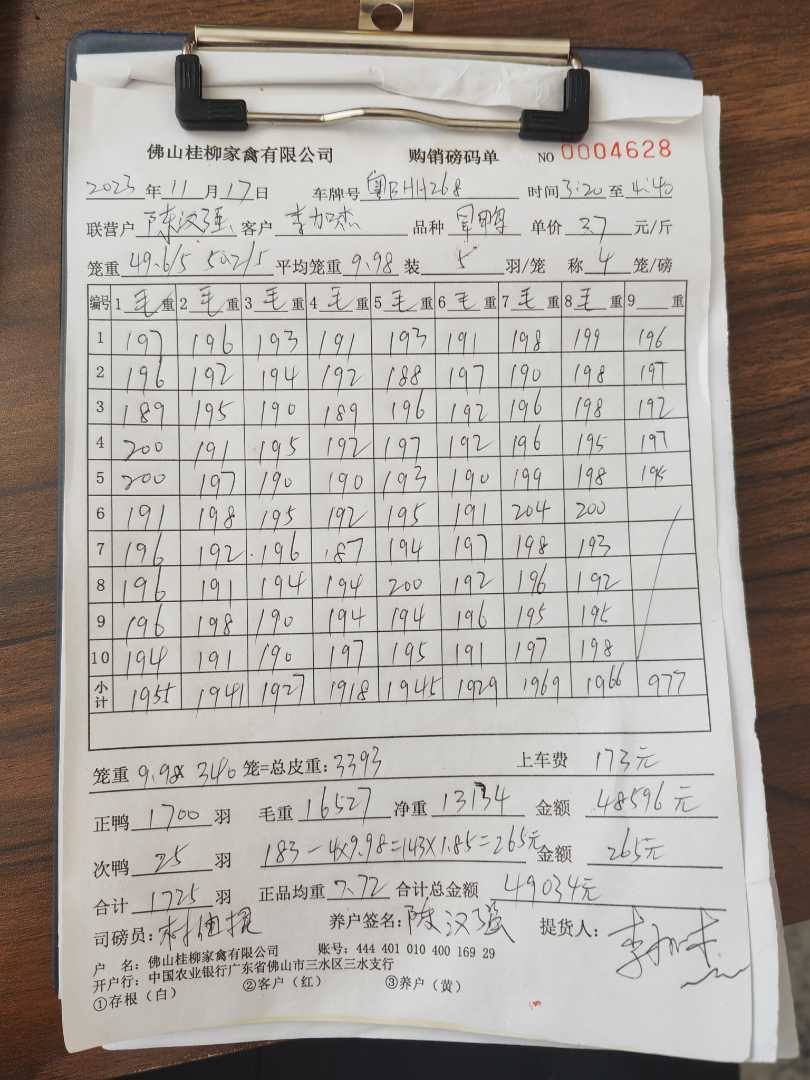 佛山桂柳家禽有限公司 购销磅码单 NO 0004628
2023年11月17日 车牌号 粤BHH268 时间 3:20 至 4:40
联营户 陈汉强 客户 李加杰 品种 单价 3.7 元/斤
笼重 49.6/5 50.2/5 平均笼重 9.98 装 5 羽/笼 称 4 笼/磅
编号 1 毛重 2 毛重 3 毛重 4 毛重 5 毛重 6 毛重 7 毛重 8 毛重 9 重
1 197 196 193 191 193 191 198 199 196
2 196 192 194 192 188 197 190 198 197
3 189 195 190 189 196 192 196 198 192
4 200 191 195 192 197 192 196 195 197
5 200 197 190 190 193 190 199 198 195
6 191 198 195 192 195 191 204 200
7 196 192 196 187 194 197 198 193
8 196 191 194 194 200 192 196 192
9 196 198 190 194 194 196 195 195
10 194 191 190 197 195 191 197 198
小计 1955 1941 1927 1918 1945 1929 1969 1966 977
笼重 9.98 × 340 笼=总皮重: 3393 上车费 173元
正鸭 1700 羽 毛重 16527 净重 13134 金额 48596元
次鸭 25 羽 183-4×9.98=143×1.85=265元 金额 265元
合计 1725 羽 正品均重 7.72 合计总金额 49034元
司磅员: 养户签名: 陈汉强 提货人: 李加杰
户 名: 佛山桂柳家禽有限公司 账号: 444 401 010 400 169 29
开户行: 中国农业银行广东省佛山市三水区三水支行
①存根(白) ②客户(红) ③养户(黄)